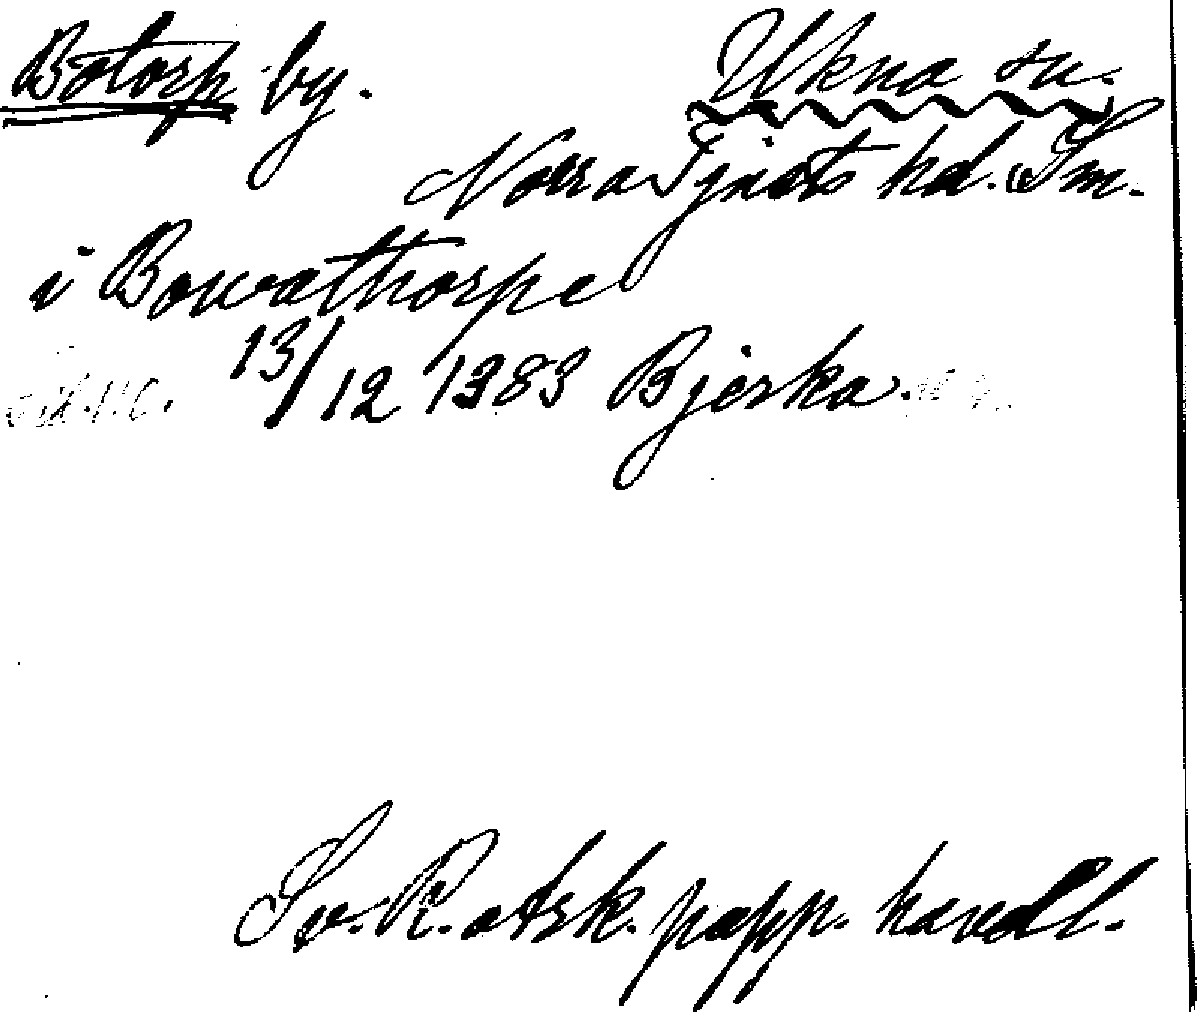 Botorp by.
Ukna sn.
Norra Tjusts hd. Sm.
i Bowathorpe
13/12 1383 Bjerka
Sv. R. atsk. papp. handl.